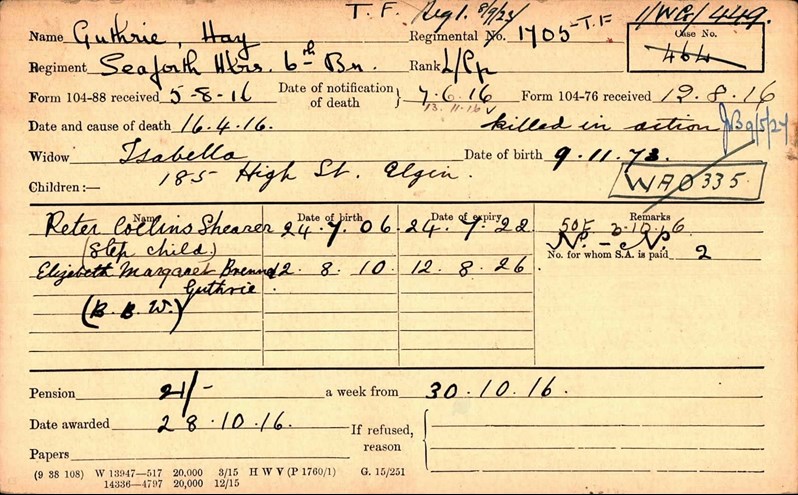 T. F. Reg 1. 8/9/23/ 1/WG/449.
Name Guthrie, Hay Regimental No. 1705 - T.F Case No. 464
Regiment Seaforth Hdrs. 6th Bn. Rank L/Cp
Form 104-88 received 5-8-16 Date of notification of death } 7.6.16 Form 104-76 received 12.8.16
13.11.16
Date and cause of death 16.4.16. killed in action
Widow Isabella Date of birth 9.11.73.
Children:— 185 High St. Elgin. WAO 335
Name Date of birth Date of expiry Remarks
Peter Collins Shearer 24.7.06 24.7.22 3.10.16
(Step child.) No. - No
Elizabeth Margaret 12.8.10 12.8.26 No. for whom S.A. is paid 2
Guthrie.
(B. B. W.)
Pension 21/- a week from 30.10.16.
Date awarded 28.10.16. If refused, reason
Papers
(9 38 108) W 13947—517 20,000 3/15 H W V (P 1760/1) G. 15/251
14336—4797 20,000 12/15